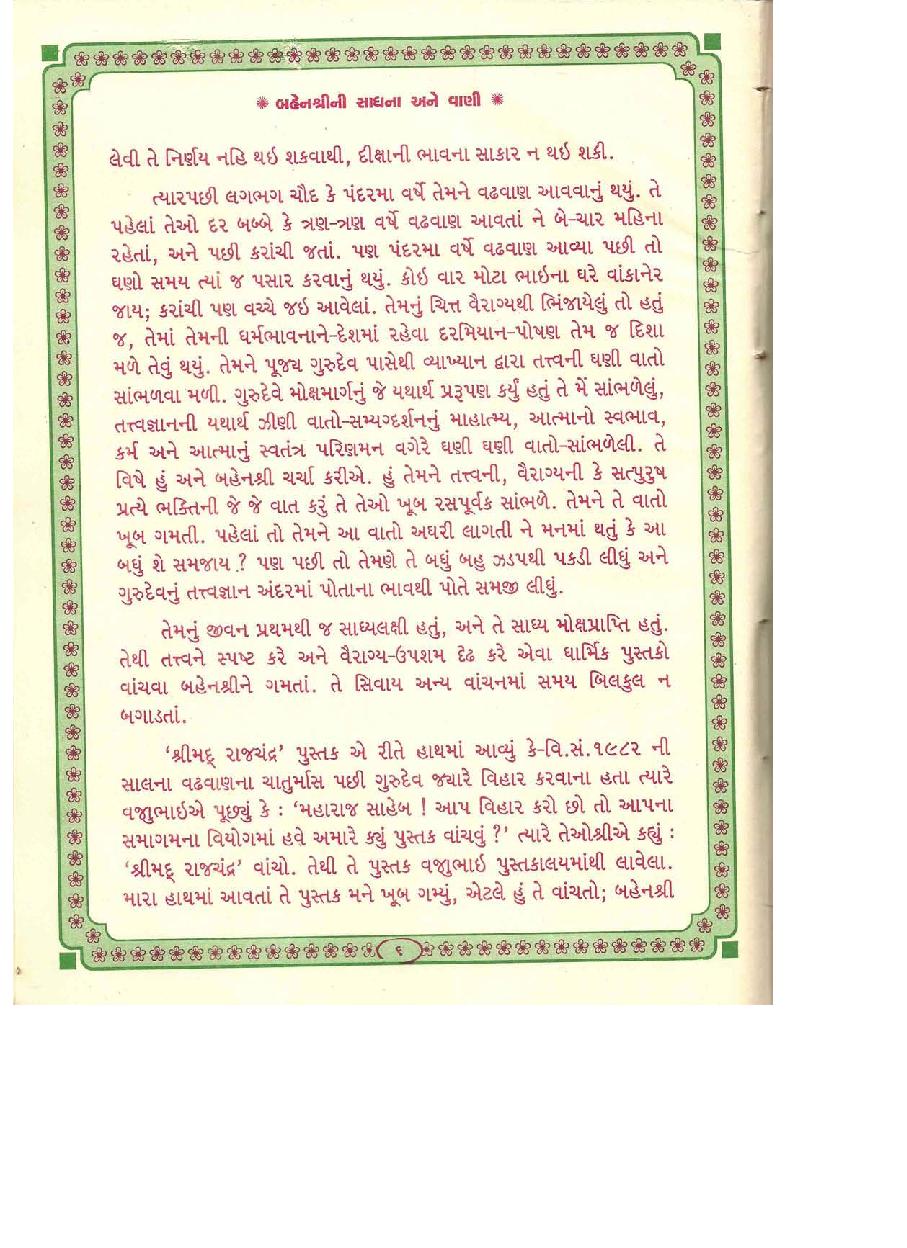 ❋ બહેનશ્રીની સાધના અને વાણી ❋
લેવી તે નિર્ણય નહિ થઇ શકવાથી, દીક્ષાની ભાવના સાકાર ન થઇ શકી.
ત્યારપછી લગભગ ચૌદ કે પંદરમા વર્ષે તેમને વઢવાણ આવવાનું થયું. તે
પહેલાં તેઓ દર બબ્બે કે ત્રણ-ત્રણ વર્ષે વઢવાણ આવતાં ને બે-ચાર મહિના
રહેતાં, અને પછી કરાંચી જતાં. પણ પંદરમા વર્ષે વઢવાણ આવ્યા પછી તો
ઘણો સમય ત્યાં જ પસાર કરવાનું થયું. કોઇ વાર મોટા ભાઇના ઘરે વાંકાનેર
જાય; કરાંચી પણ વચ્ચે જઇ આવેલાં. તેમનું ચિત્ત વૈરાગ્યથી ભિંજાયેલું તો હતું
જ, તેમાં તેમની ધર્મભાવનાને-દેશમાં રહેવા દરમિયાન-પોષણ તેમ જ દિશા
મળે તેવું થયું. તેમને પૂજ્ય ગુરુદેવ પાસેથી વ્યાખ્યાન દ્વારા તત્ત્વની ઘણી વાતો
સાંભળવા મળી. ગુરુદેવે મોક્ષમાર્ગનું જે યથાર્થ પ્રરૂપણ કર્યું હતું તે મેં સાંભળેલું,
તત્ત્વજ્ઞાનની યથાર્થ ઝીણી વાતો-સમ્યગ્દર્શનનું માહાત્મ્ય, આત્માનો સ્વભાવ,
કર્મ અને આત્માનું સ્વતંત્ર પરિણમન વગેરે ઘણી ઘણી વાતો-સાંભળેલી. તે
વિષે હું અને બહેનશ્રી ચર્ચા કરીએ. હું તેમને તત્ત્વની, વૈરાગ્યની કે સત્પુરુષ
પ્રત્યે ભક્તિની જે જે વાત કરું તે તેઓ ખૂબ રસપૂર્વક સાંભળે. તેમને તે વાતો
ખૂબ ગમતી. પહેલાં તો તેમને આ વાતો અઘરી લાગતી ને મનમાં થતું કે આ
બધું શે સમજાય ? પણ પછી તો તેમણે તે બધું બહુ ઝડપથી પકડી લીધું અને
ગુરુદેવનું તત્ત્વજ્ઞાન અંદરમાં પોતાના ભાવથી પોતે સમજી લીધું.
તેમનું જીવન પ્રથમથી જ સાધ્યલક્ષી હતું, અને તે સાધ્ય મોક્ષપ્રાપ્તિ હતું.
તેથી તત્ત્વને સ્પષ્ટ કરે અને વૈરાગ્ય-ઉપશમ દૃઢ કરે એવા ધાર્મિક પુસ્તકો
વાંચવા બહેનશ્રીને ગમતાં. તે સિવાય અન્ય વાંચનમાં સમય બિલકુલ ન
બગાડતાં.
‘શ્રીમદ્ રાજચંદ્ર’ પુસ્તક એ રીતે હાથમાં આવ્યું કે-વિ.સં.૧૯૮૨ ની
સાલના વઢવાણના ચાતુર્માસ પછી ગુરુદેવ જ્યારે વિહાર કરવાના હતા ત્યારે
વજુભાઇએ પૂછ્યું કે : ‘મહારાજ સાહેબ ! આપ વિહાર કરો છો તો આપના
સમાગમના વિયોગમાં હવે અમારે ક્યું પુસ્તક વાંચવું ?’ ત્યારે તેઓશ્રીએ કહ્યું :
‘શ્રીમદ્ રાજચંદ્ર’ વાંચો. તેથી તે પુસ્તક વજુભાઇ પુસ્તકાલયમાંથી લાવેલા.
મારા હાથમાં આવતાં તે પુસ્તક મને ખૂબ ગમ્યું, એટલે હું તે વાંચતો; બહેનશ્રી
૬